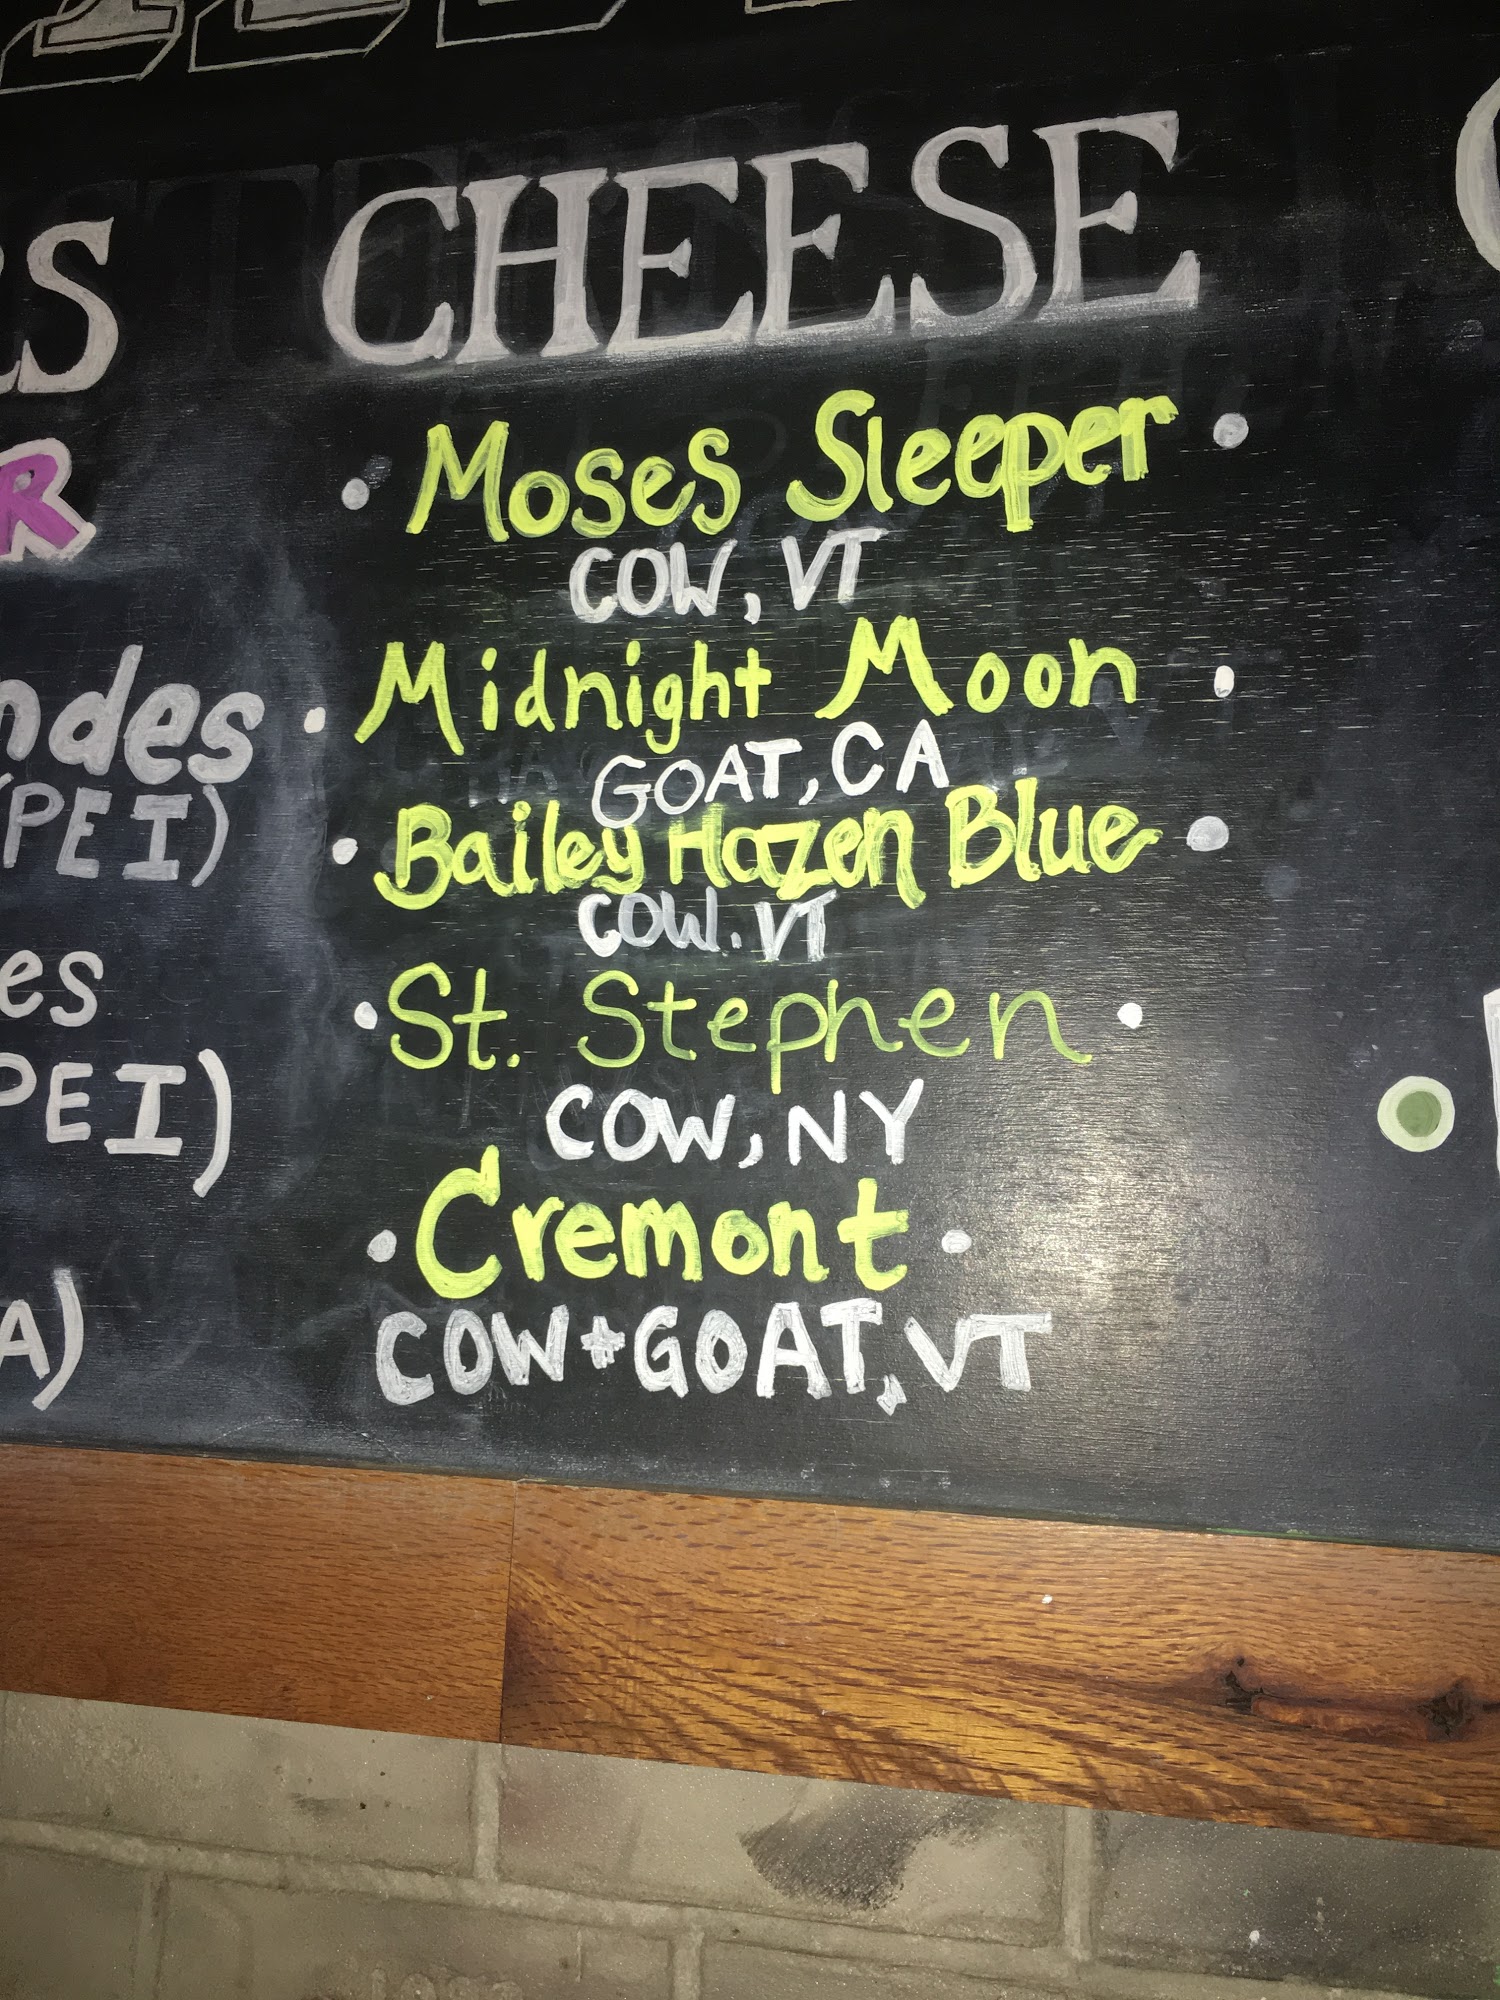 CHEESE
Moses Sleeper
COW, VT
Midnight Moon
GOAT, CA
Bailey Hazen Blue
COW. VT
St. Stephen
COW, NY
Cremont
COW+GOAT, VT
S
R
ndes
(PEI)
es
PEI)
A)